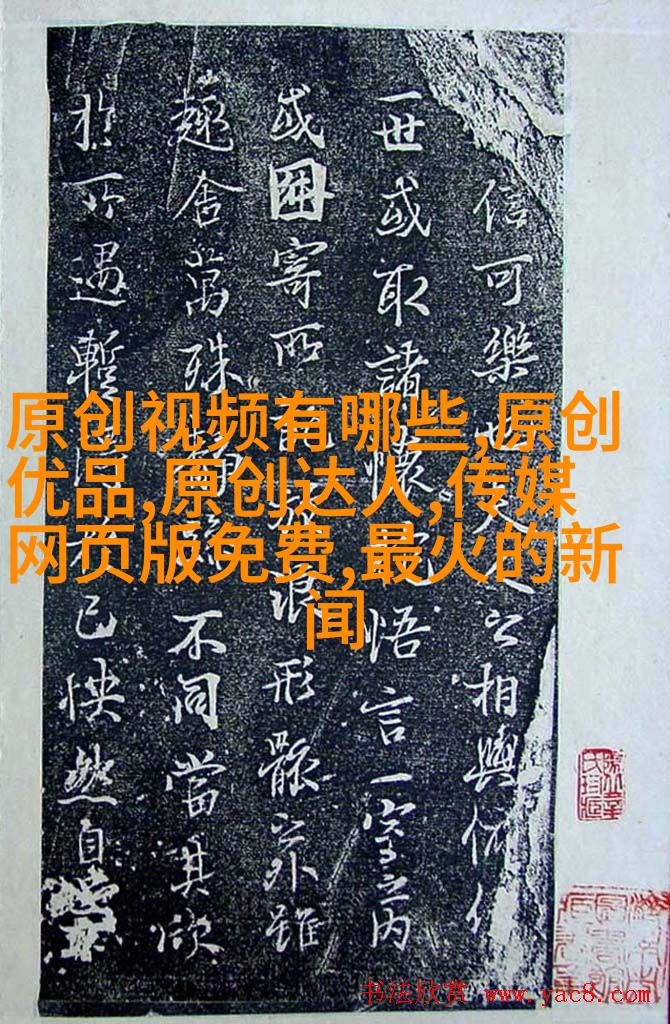 信可樂也夫人之相與俯仰
一世或取諸懷抱悟言一室之內
或因寄所託放浪形骸之外雖
趣舍萬殊靜躁不同當其欣
於所遇暫得於己怏然自
原创视频有哪些,原创
优品,原创达人,传媒
网页版免费,最火的新
闻
书法欣赏 www.yac8.com